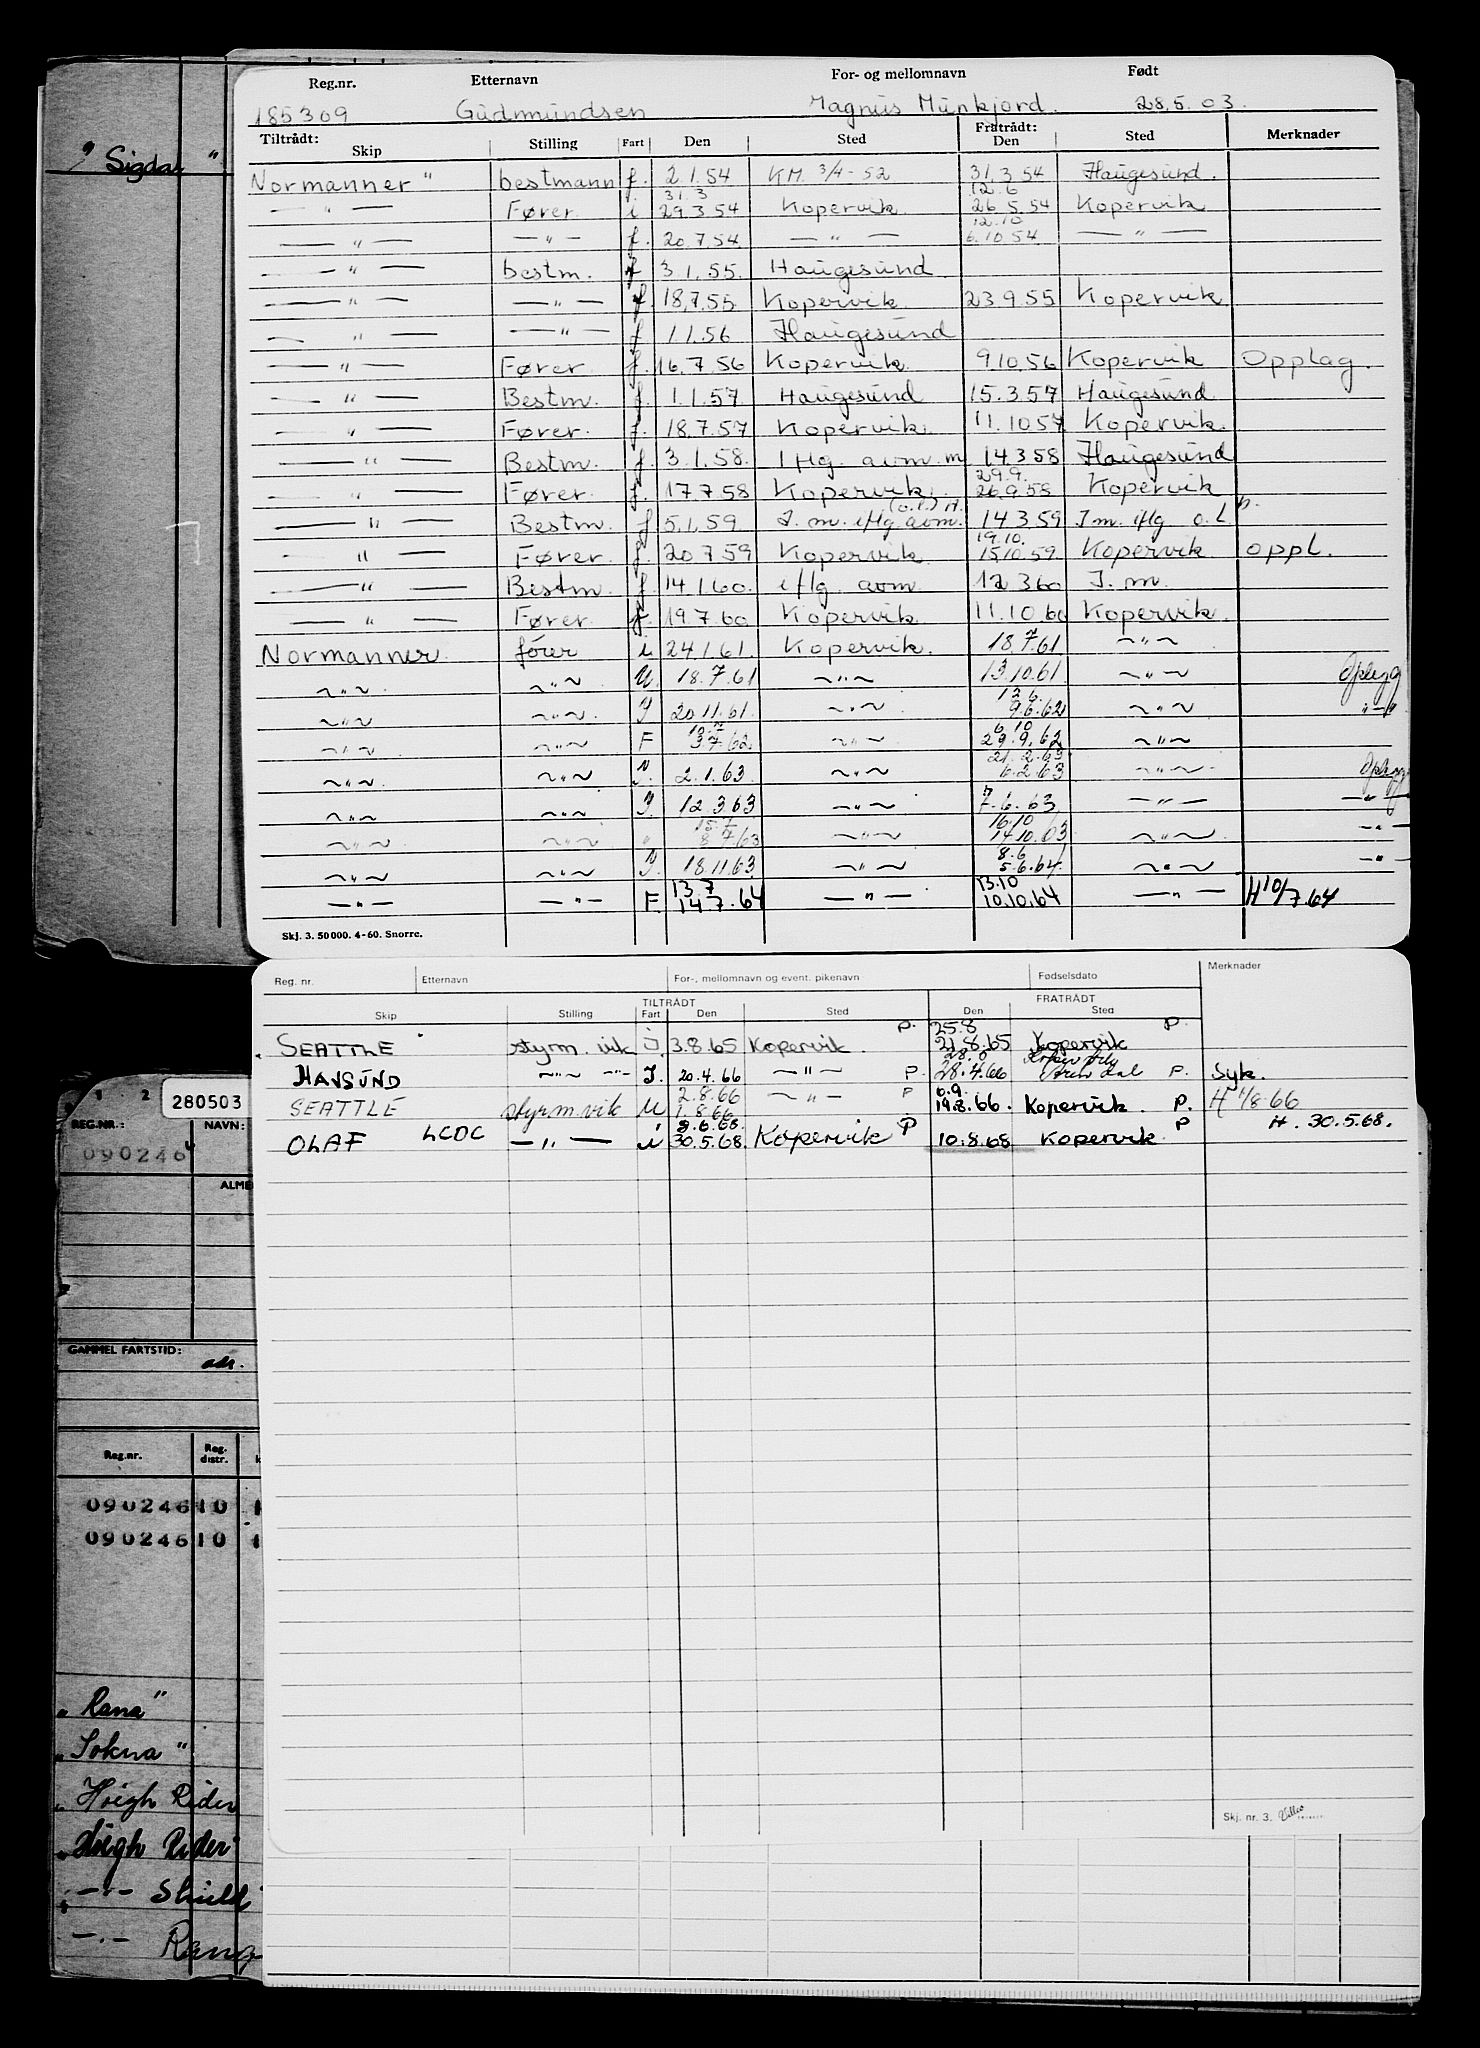 " Sigdal "
Reg.nr. Etternavn For- og mellomnavn Født
185309 Gudmundsen Magnus Munkjord. 28.5.03.
Tiltrådt: Fratrådt:
Skip Stilling Fart Den Sted Den Sted Merknader
Normanner " bestmann f. 2.1.54 KM. 3/4-52 31.3.54 Haugesund.
31.3 12.6
— " — Fører i 29.3.54 Kopervik 26.5.54 Kopervik
12.10
— " — — " — f. 20.7.54 — " — 6.10.54 — " —
— " — bestm. f 3.1.55. Haugesund
— " — — " — f. 18.7.55 Kopervik 23.9.55 Kopervik
— " — — " — f 1.1.56 Haugesund
— " — Fører f. 16.7.56 Kopervik 9.10.56 Kopervik Opplag.
— " — Bestm. f. 1.1.57. Haugesund 15.3.57 Haugesund
— " — Fører. f. 18.7.57 Kopervik. 11.10.57 Kopervik.
— " — Bestm. f. 3.1.58. Iflg. avm. m 14.3.58 Haugesund
29.9.
— " — Fører. f. 17.7.58 Kopervik. 26.9.58 Kopervik
— " — Bestm. f. 5.1.59 J. m. iflg avm. 14.3.59 J m. iflg o.L
19.10.
— " — Fører. f. 20.7.59 Kopervik 15.10.59 Kopervik oppl.
— " — Bestm f. 14.1.60. iflg. avm 12.3.60 J. m.
— " — Fører. f. 19.7.60 Kopervik 11.10.60 Kopervik.
Normanner. fører i 24.1.61. Kopervik. 18.7.61 ~ " ~
~ " ~ ~ " ~ U. 18.7.61 ~ " ~ 13.10.61. ~ " ~ Oplegg
12.6.
~ " ~ ~ " ~ J 20.11.61. ~ " ~ 9.6.62 ~ " ~ " — "
10.7 6.10
~ " ~ ~ " ~ F 3.7.62. ~ " ~ 29.9.62 ~ " ~
21.2.63
~ " ~ ~ " ~ J. 2.1.63. ~ " ~ 6.2.63 ~ " ~ Oplegg
~ " ~ ~ " ~ J. 12.3.63 ~ " ~ 7.6.63 — " — — " —
15.7 16.10
~ " ~ ~ " ~ " 8.7.63 ~ " ~ 14.10.63 ~ " ~ — " —
8.6
~ " ~ ~ " ~ J. 18.11.63. ~ " ~ 5.6.64. ~ " ~ — " —
13.7 13.10
— " — — " — F. 14.7.64 — " — 10.10.64 — " — H 10/7.64
Skj. 3. 50 000. 4-60. Snorre.
Reg. nr. Etternavn For-, mellomnavn og event. pikenavn Fødselsdato Merknader
TILTRÅDT FRATRÅDT
Skip Stilling Fart Den Sted Den Sted
P. 25.8 P.
SEATTLE styrm. vik J. 3.8.65 Kopervik. 21.8.65 Kopervik
HAVSUND ~ " ~ - " - J. 20.4.66 — " — P. 28.4.66 Arendal P. Syk.
2.8.66
SEATTLE styrm.vik U 1.8.66 — " — P 19.8.66. Kopervik. P. H 1/8.66
OLAF LCDC — " — i 30.5.68. Kopervik P 10.8.68 Kopervik. P H. 30.5.68.
1 2 280503
REG.NR.: NAVN:
0902464
ALME
GAMMEL FARTSTID:
adr.
Reg.nr. Reg. distr.
0902461 0
0902461 0
" Rana "
" Sokna "
" Höegh Rider
" Höegh Rider "
" — " — Shield
— " — Rana
Skj. nr. 3.